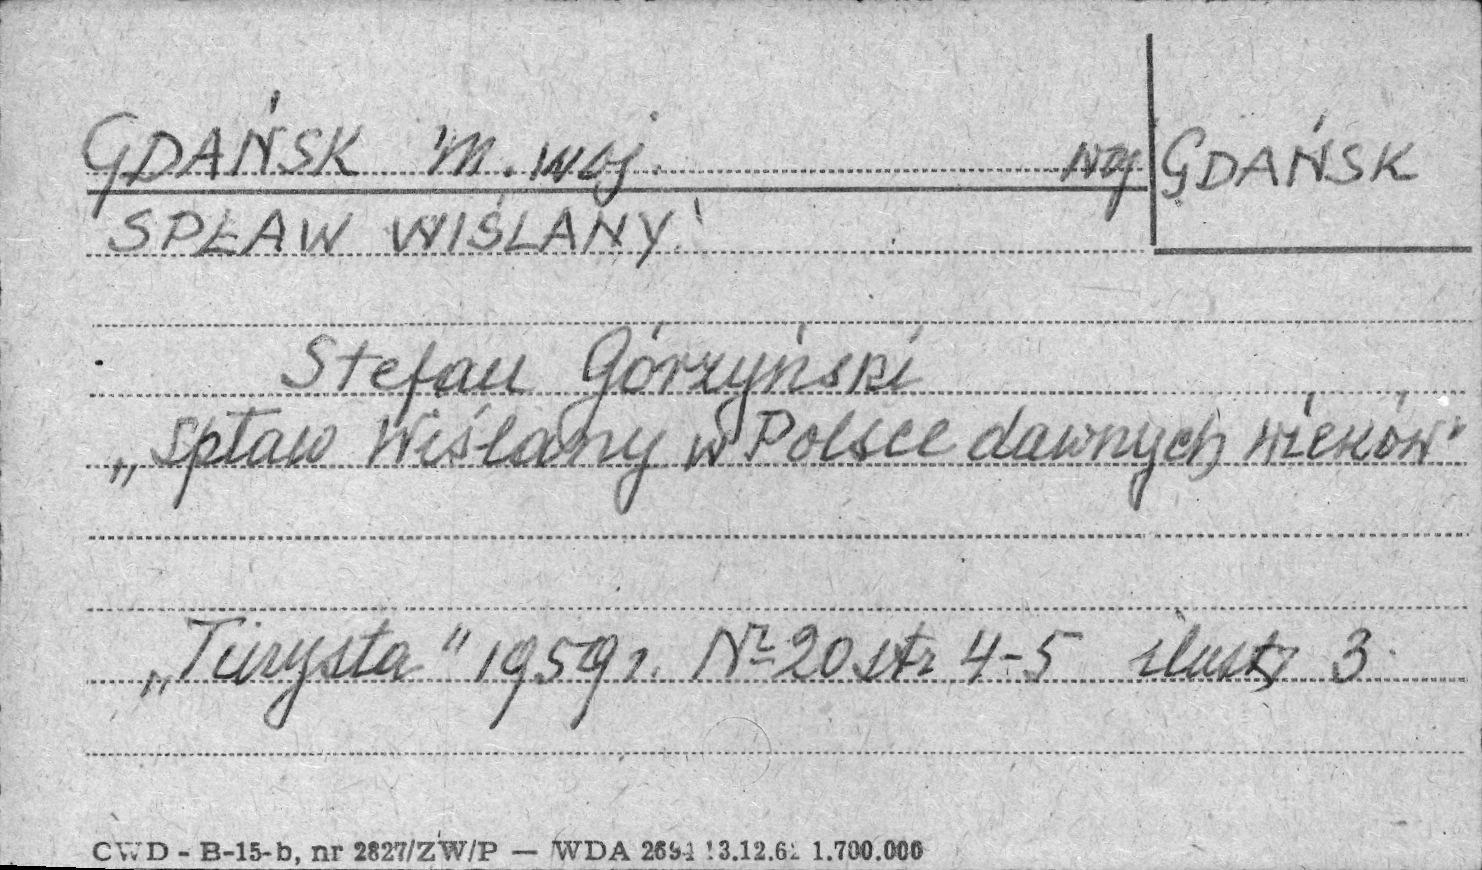 GDAŃSK m. woj. woj GDAŃSK
SPŁAW WIŚLANY
Stefan Górzyński
„Spław Wiślany w Polsce dawnych wieków"
„Turysta" 1959 r. Nr 20 str 4-5 ilustr 3
CWD - B-15-b, nr 2827/ZW/P — WDA 1.700.000